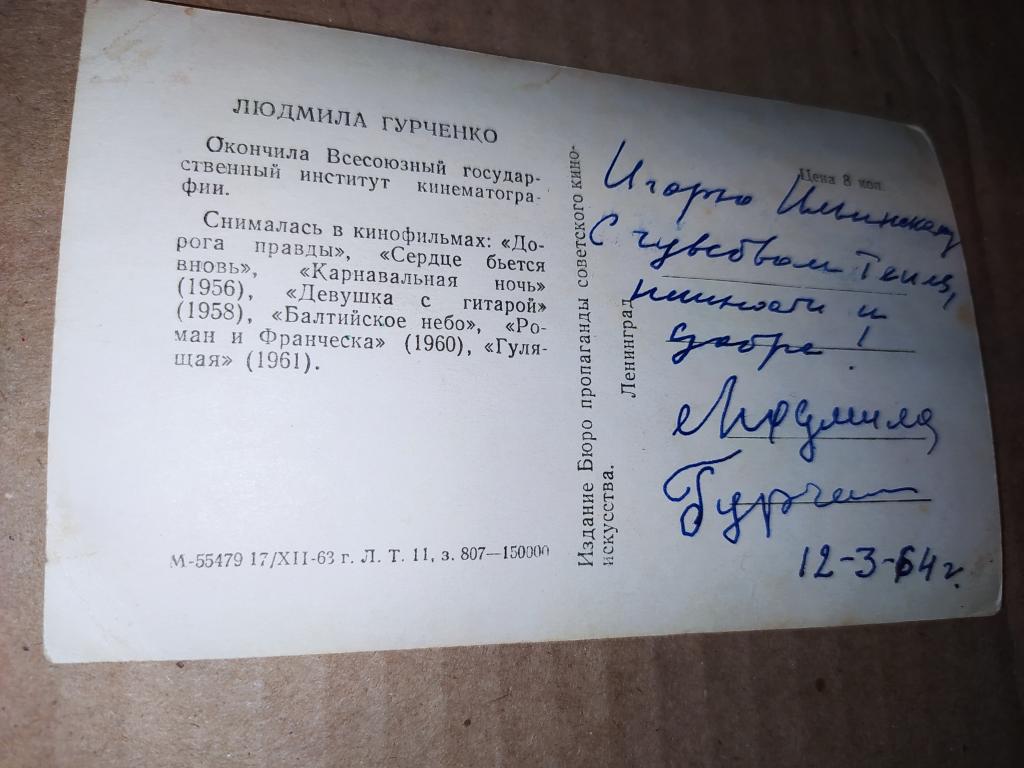 ЛЮДМИЛА ГУРЧЕНКО
Окончила Всесоюзный государ-
ственный институт кинематогра-
фии.
Снималась в кинофильмах: «До-
рога правды», «Сердце бьется
вновь», «Карнавальная ночь»
(1956), «Девушка с гитарой»
(1958), «Балтийское небо», «Ро-
ман и Франческа» (1960), «Гуля-
щая» (1961).
М-55479 17/XII-63 г. Л. Т. 11, з. 807—150000
Издание Бюро пропаганды советского кино-
искусства.
Ленинград
Цена 8 коп.
Игорю
С чувством тепла,
нежности и
добра!
Людмила
Гурчен
12-3-64 г.